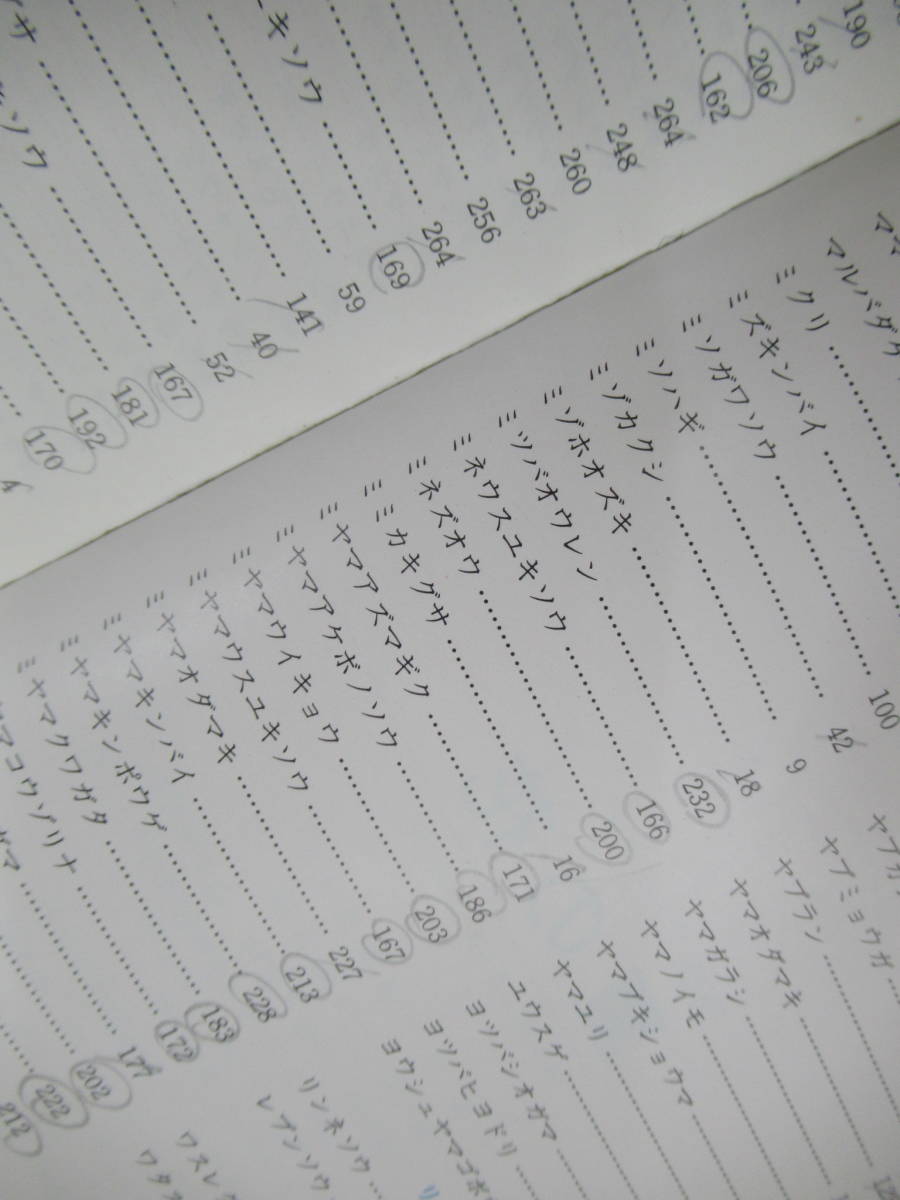 190
243
206
162
264
248
260
263
256
264
キソウ ………… 169
59
141
40
52
167
181
192
170
4
ミクリ …………
ミズキンバイ …………
ミソガワソウ ………… 100
ミソハギ ………… 42
ミゾカクシ ………… 9
ミゾホオズキ ………… 18
ミツバオウレン ………… 232
ミネウスユキソウ ………… 166
ミネズオウ ………… 200
ミミカキグサ ………… 16
ミヤマアズマギク ………… 171
ミヤマアケボノソウ ………… 186
ミヤマウイキョウ ………… 203
ミヤマウスユキソウ ………… 167
ミヤマオダマキ ………… 227
ミヤマキンバイ ………… 213
ミヤマキンポウゲ ………… 228
ミヤマクワガタ ………… 183
マコウゾリナ ………… 172
177
202
222
212
ヤブミョウガ
ヤブラン …………
ヤマオダマキ …………
ヤマガラシ …………
ヤマノイモ …………
ヤマブキショウマ …………
ヤマユリ …………
ユウスゲ …………
ヨツバシオガマ …………
ヨツバヒヨドリ …………
リンネソウ …………
レブンソウ …………